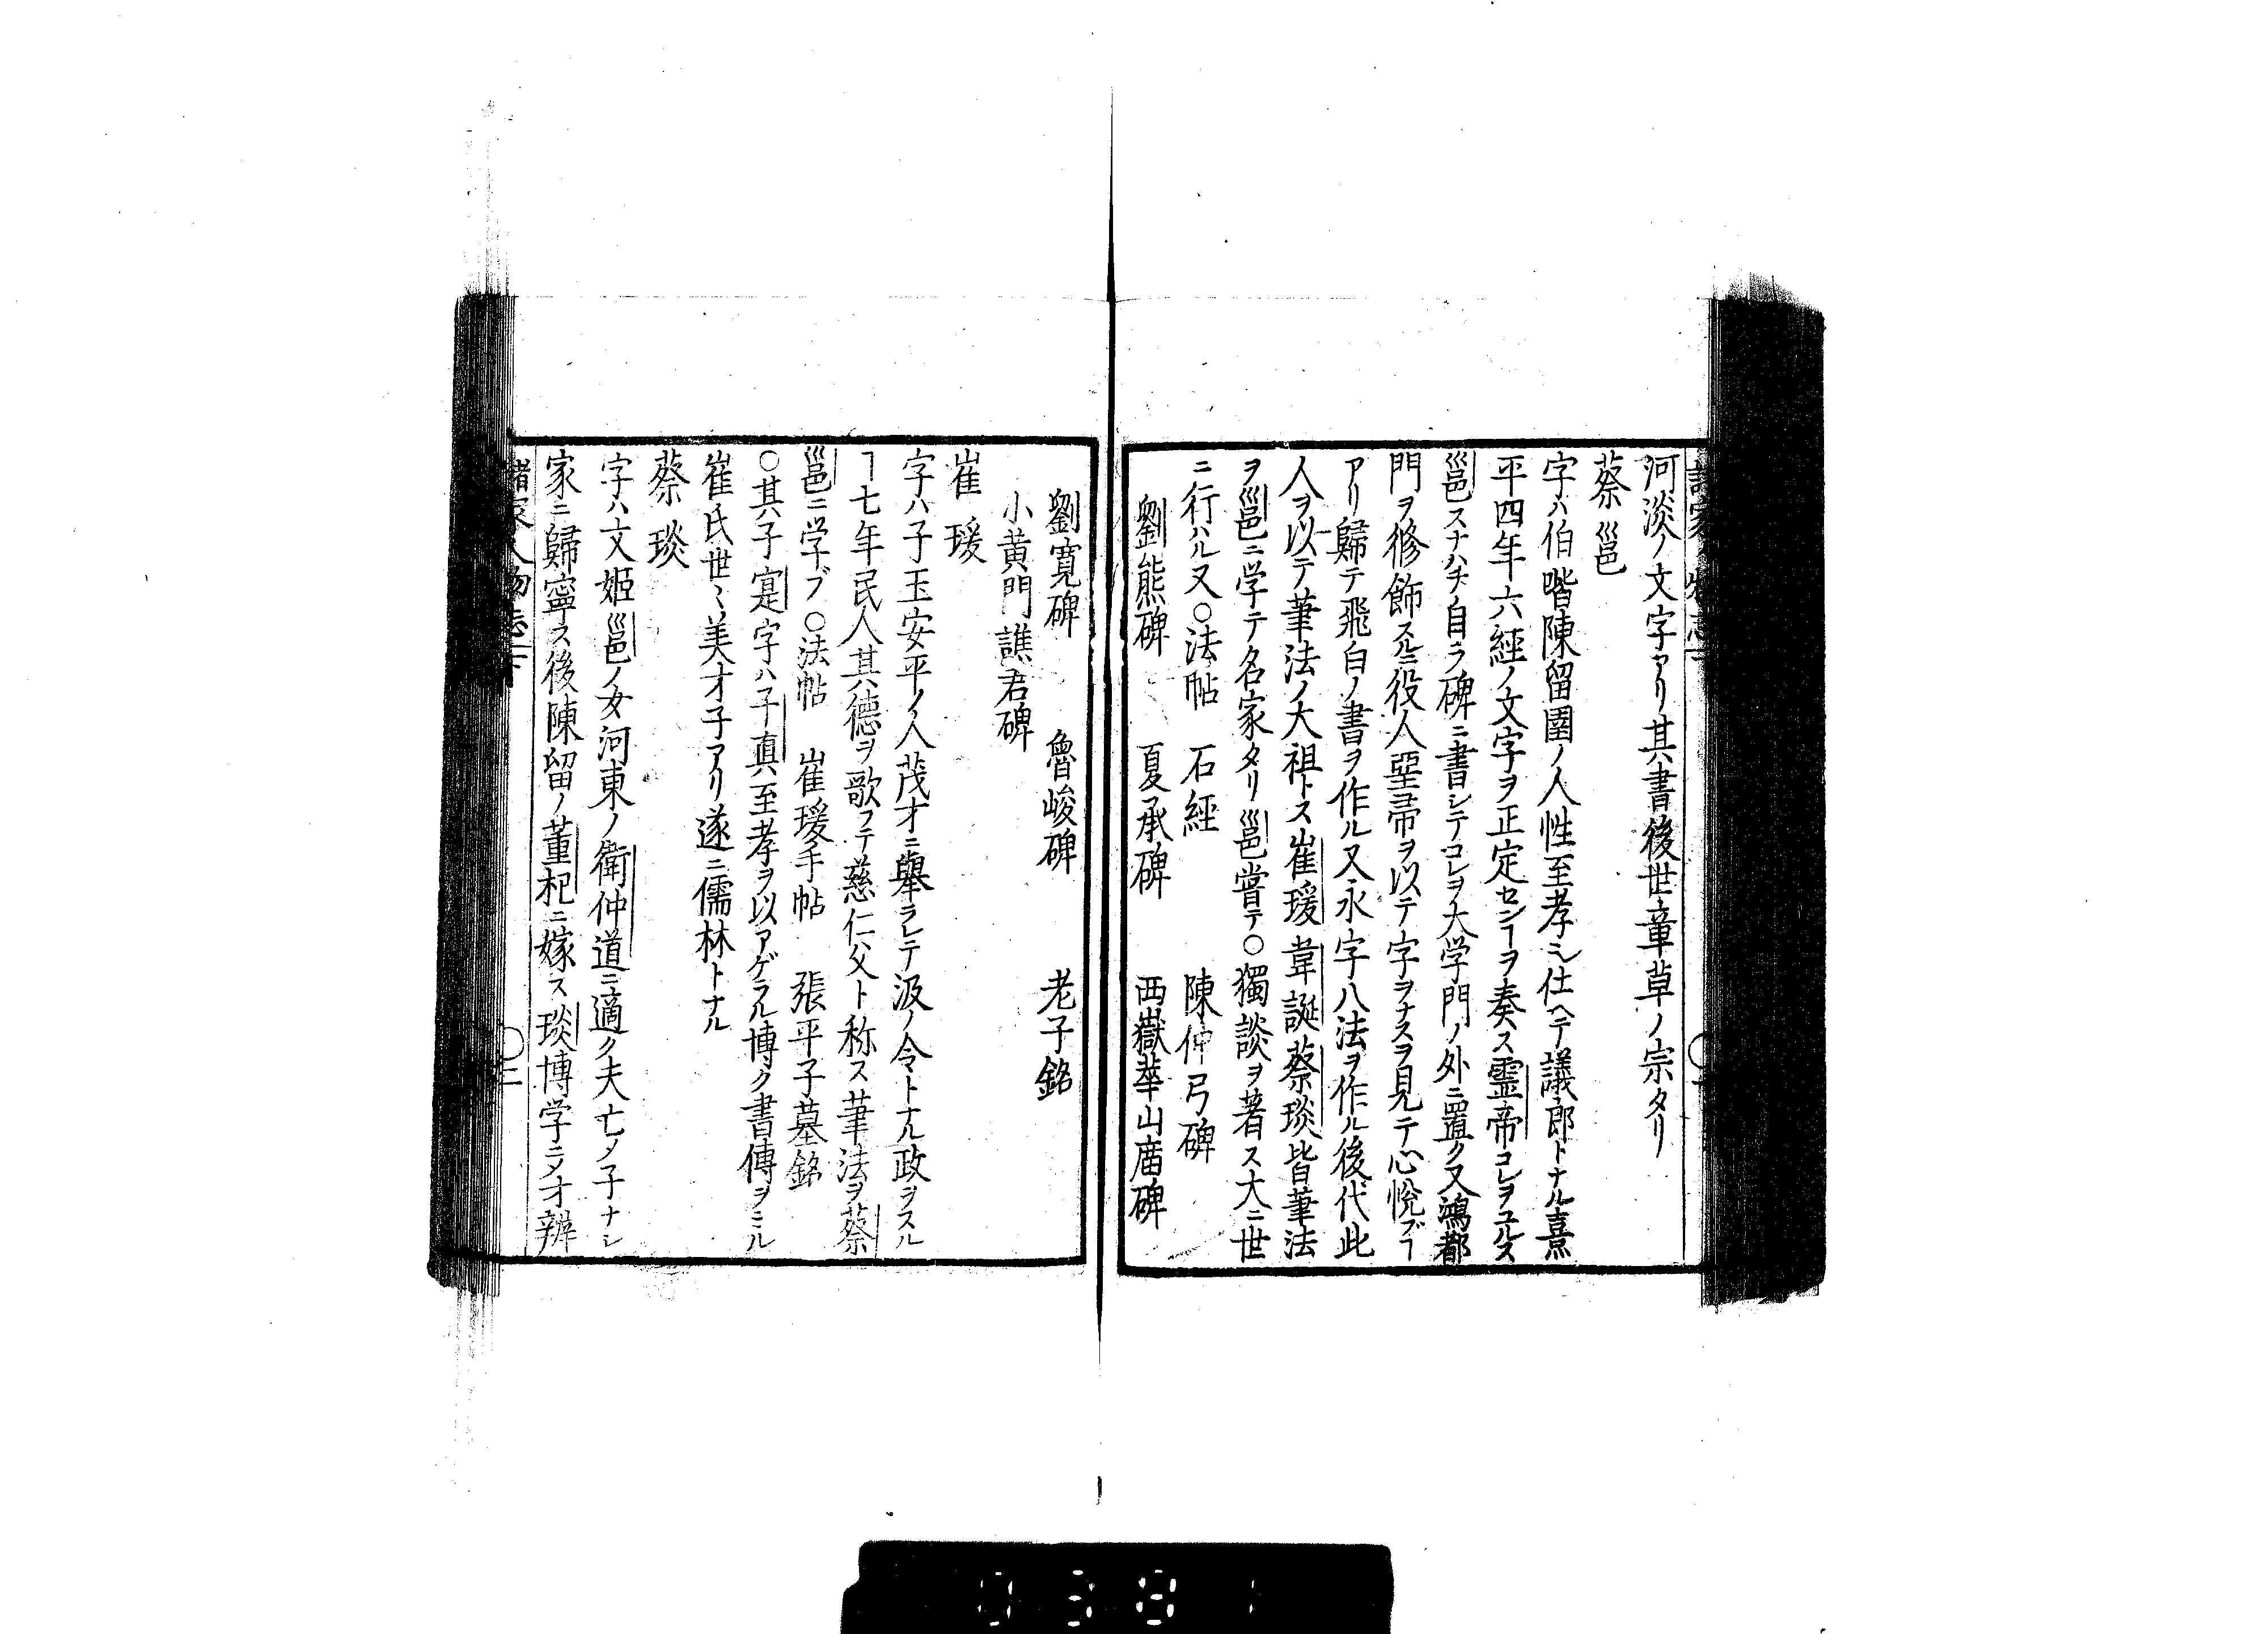 河淡ノ文字アリ其書後世章草ノ宗タリ
蔡邕
字ハ伯喈陳留圉ノ人性至孝ニ乄仕ヘテ議郎トナル熹
平四年六經ノ文字ヲ正定センヿヲ奏ス霊帝コレヲユルス
邕スナハチ自ラ碑ニ書シテコレヲ大学門ノ外ニ置ク又鴻都
門ヲ修飾スルニ役人堊帚ヲ以テ字ヲナスヲ見テ心悅ブヿ
アリ歸テ飛白ノ書ヲ作ル又永字八法ヲ作ル後代此
人ヲ以テ筆法ノ大祖トス崔瑗韋誕蔡琰皆筆法
ヲ邕ニ学テ名家タリ邕嘗テ○獨談ヲ著ス大ニ世
ニ行ハル又○法帖 石經 陳仲弓碑
劉熊碑 夏承碑 西嶽華山庿碑
劉寛碑 魯峻碑 老子銘
小黄門譙君碑
崔瑗
字ハ子玉安平ノ人茂才ニ舉ラレテ汲ノ令トナル政ヲスル
ヿ七年民人其德ヲ歌フテ慈仁父ト称ス筆法ヲ蔡
邕ニ学ブ○法帖 崔瑗手帖 張平子墓銘
○其子寔字ハ子真至孝ヲ以アゲラル博ク書傳ヲミル
崔氏世〻美才子アリ遂ニ儒林トナル
蔡琰
字ハ文姬邕ノ女河東ノ衛仲道ニ適ク夫亡乄子ナシ
家ニ歸寧ス後陳留ノ董杞ニ嫁ス琰博学ニ乄才辨
諸家人物志下 ○二